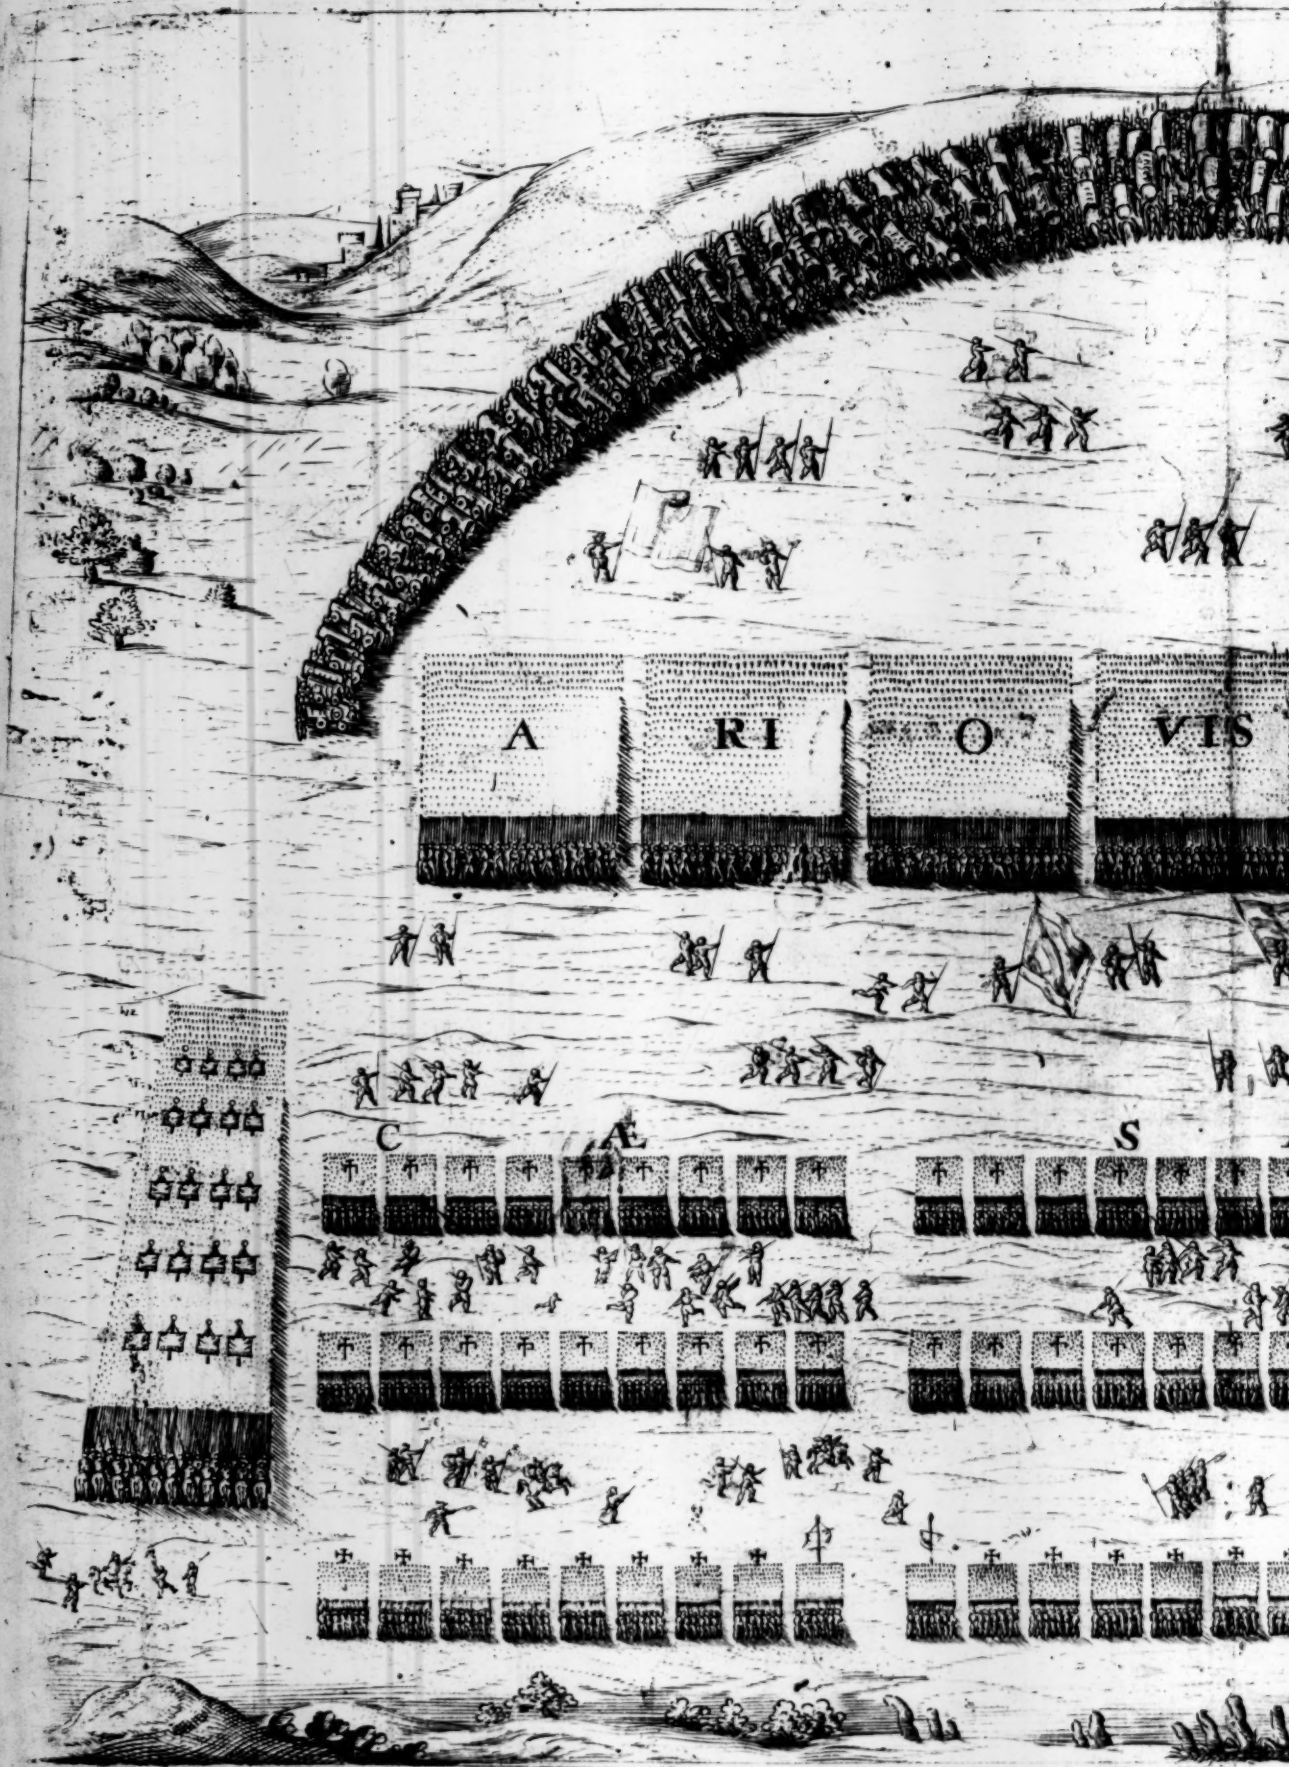 A RI O VIS
C Æ S